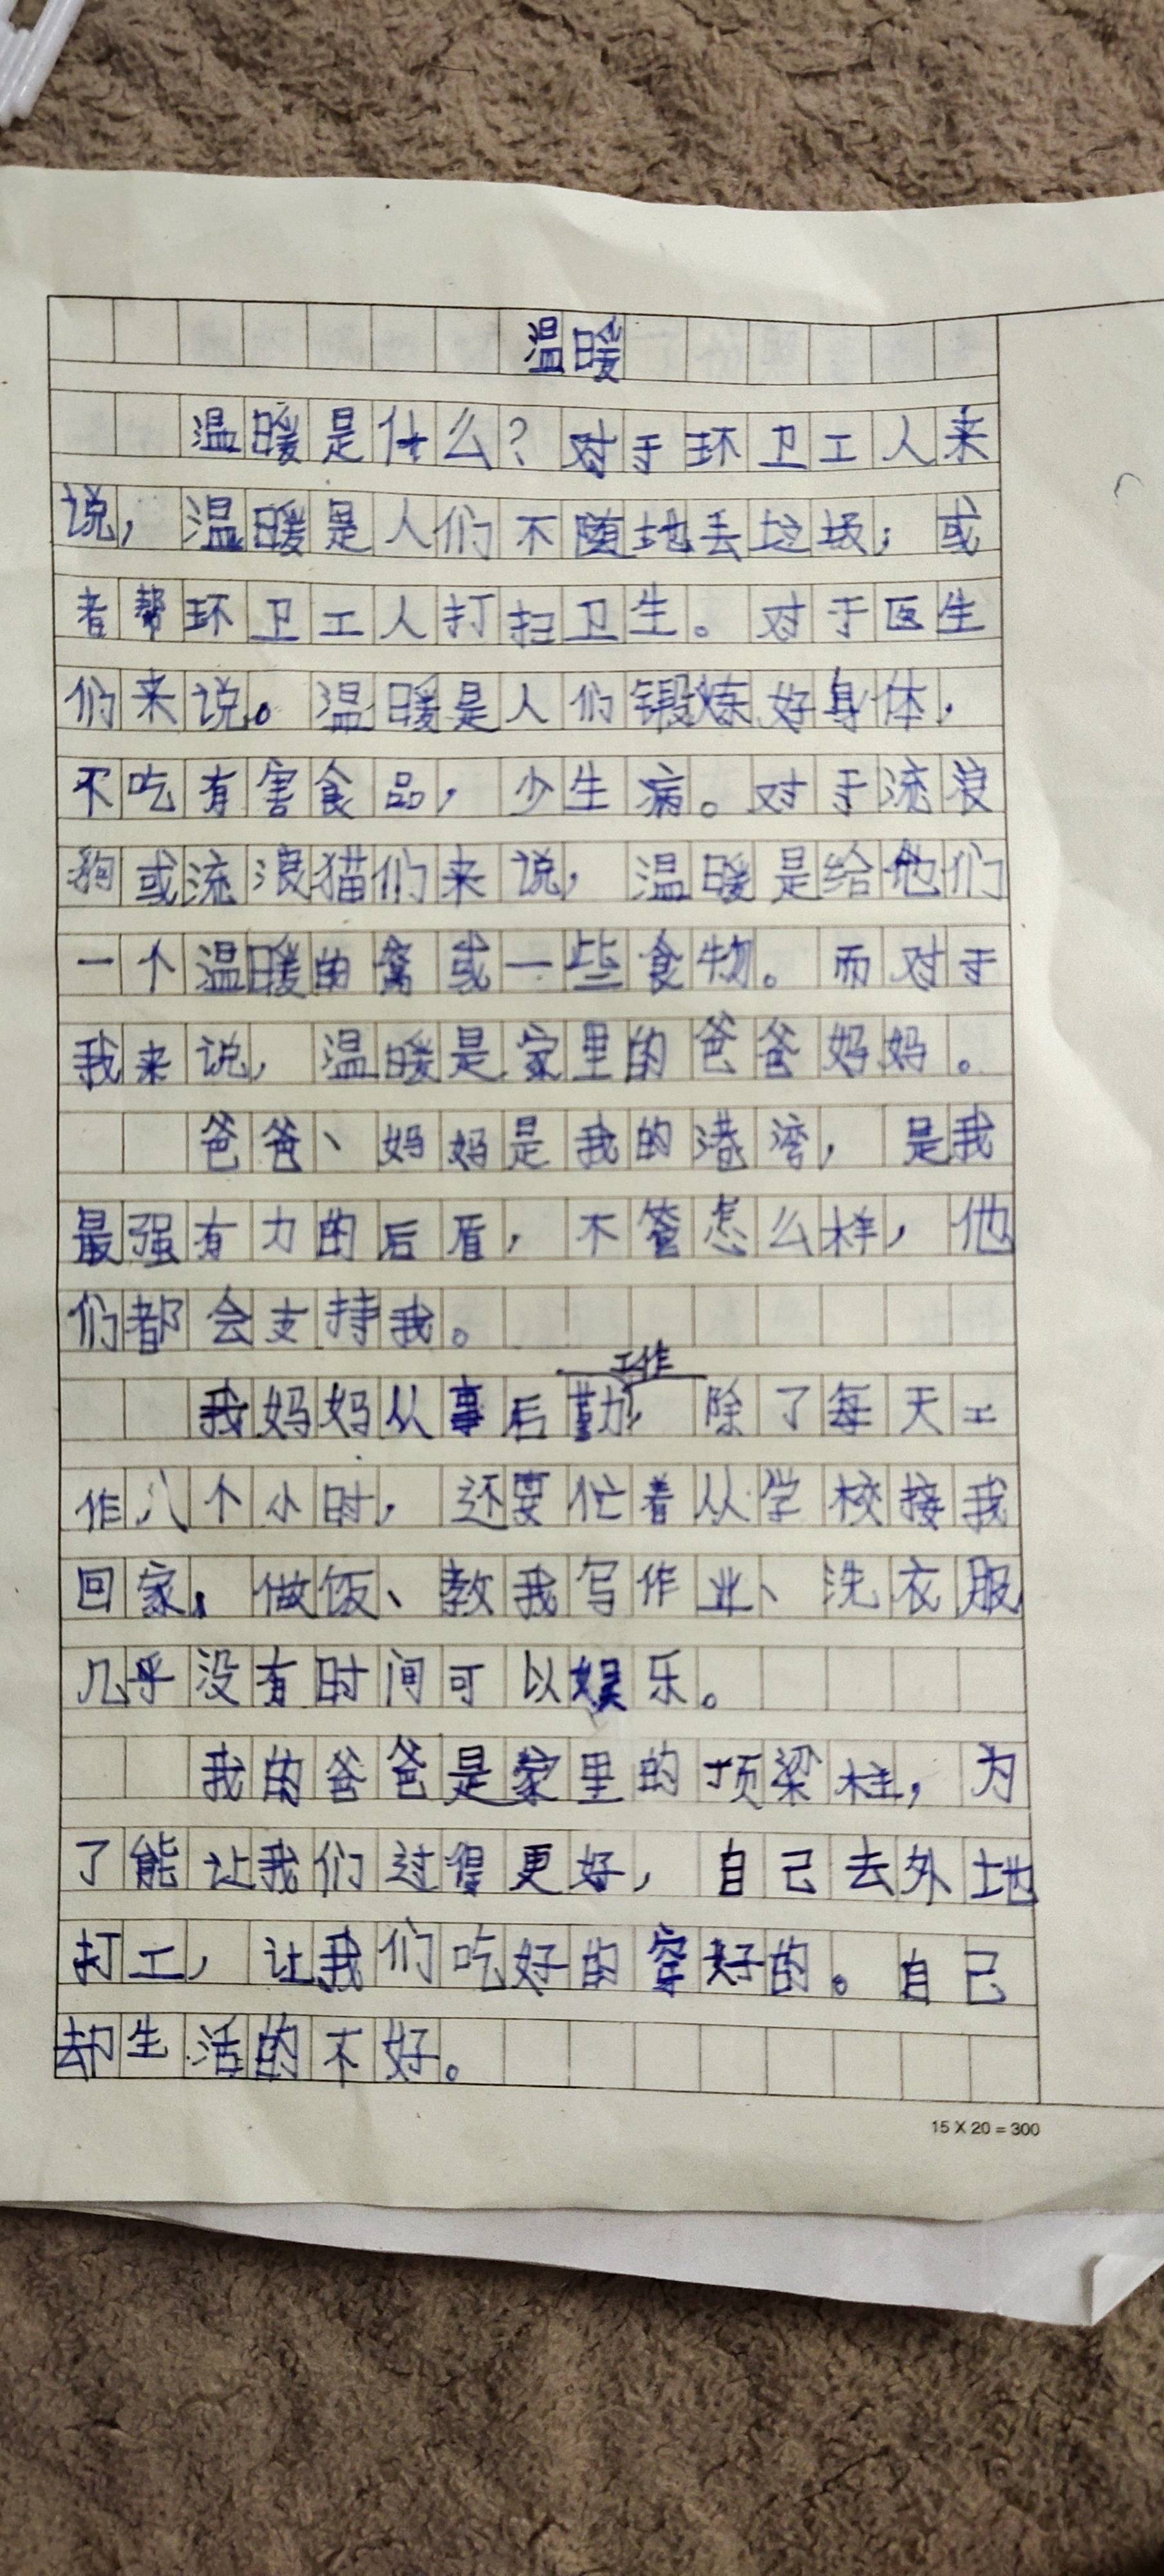 温暖
温暖是什么？对于环卫工人来
说，温暖是人们不随地丢垃圾；或
者帮环卫工人打扫卫生。对于医生
们来说。温暖是人们锻炼好身体，
不吃有害食品，少生病。对于流浪
狗或流浪猫们来说，温暖是给他们
一个温暖的窝或一些食物。而对于
我来说，温暖是家里的爸爸妈妈。
爸爸、妈妈是我的港湾，是我
最强有力的后盾，不管怎么样，他
们都会支持我。
我妈妈从事后勤工作，除了每天工
作八个小时，还要忙着从学校接我
回家，做饭、教我写作业、洗衣服
几乎没有时间可以娱乐。
我的爸爸是家里的顶梁柱，为
了能让我们过得更好，自己去外地
打工，让我们吃好的穿好的。自己
却生活的不好。
15 X 20 = 300